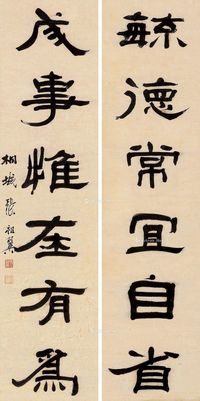 毓德常宜自省
成事惟在有為
桐城張祖翼